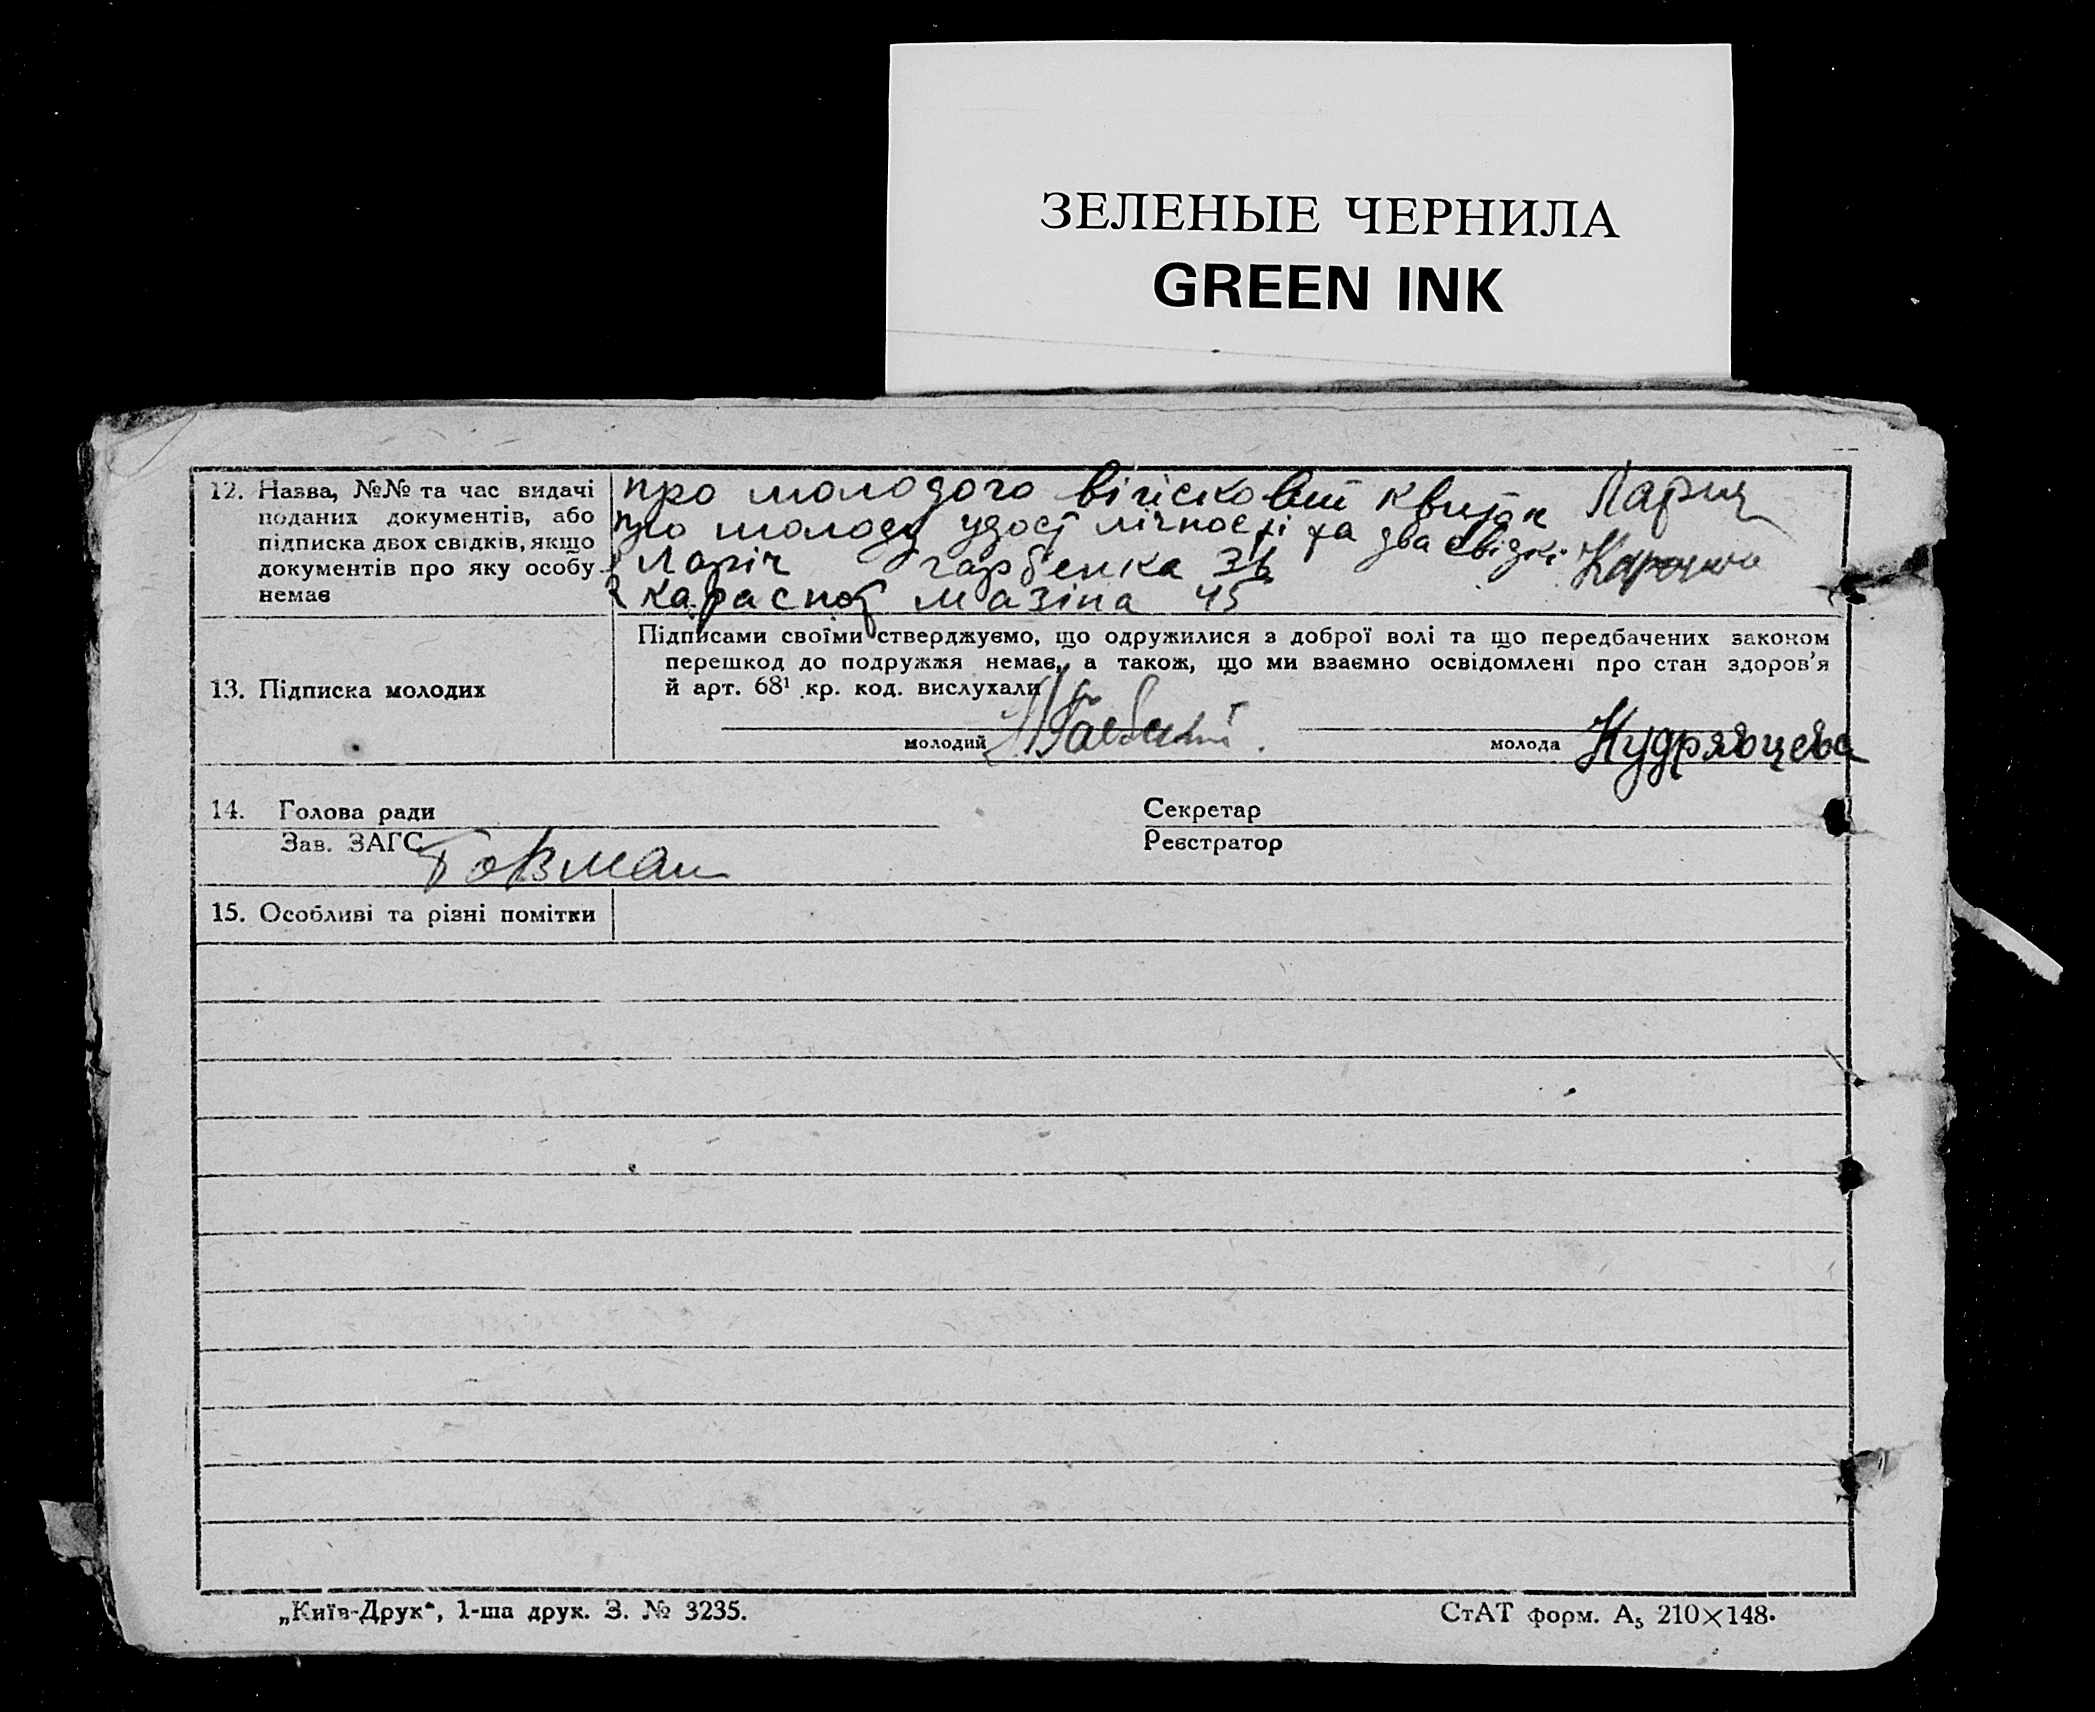 ЗЕЛЕНЫЕ ЧЕРНИЛА
GREEN INK
12. Назва, №№ та час видачі
поданих документів, або
підписка двох свідків, якщо
документів про яку особу
немає
про молодого військовий квиток Ларич
про молоду удост лічності та два свідкі
Ларіч 36
Мазіпа 45
13. Підписка молодих
Підписами своїми стверджуємо, що одружилися з доброї волі та що передбачених законом
перешкод до подружжя немає, а також, що ми взаємно освідомлені про стан здоров'я
й арт. 68¹ кр. код. вислухали
молодий молода Кудрявцева
14. Голова ради Секретар
Зав. ЗАГС Реєстратор
15. Особливі та різні помітки
„Київ-Друк“, 1-ша друк. З. № 3235. СтАТ форм. А₅ 210×148.